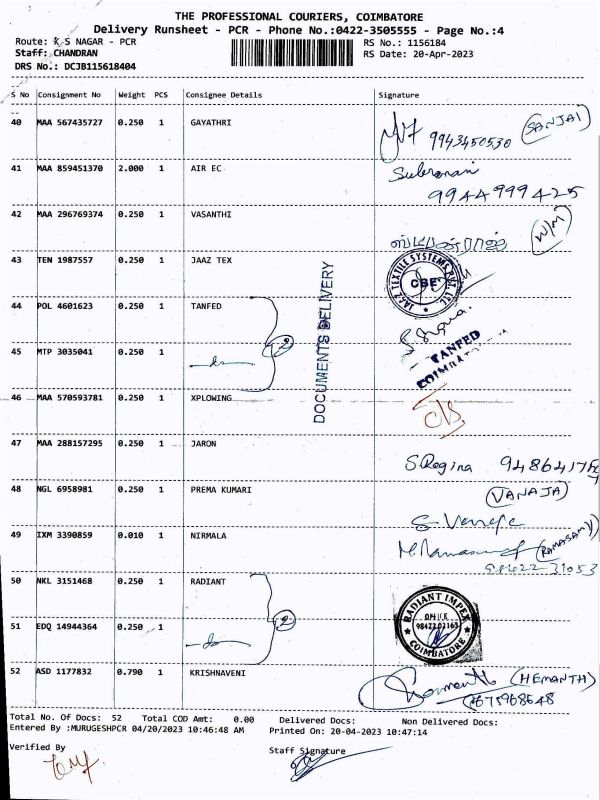 THE PROFESSIONAL COURIERS, COIMBATORE
Delivery Runsheet - PCR - Phone No.:0422-3505555 - Page No.:4
Route: K S NAGAR - PCR RS No.: 1156184
Staff: CHANDRAN RS Date: 20-Apr-2023
DRS No.: DCJB115618404
S No Consignment No Weight PCS Consignee Details Signature
40 MAA 567435727 0.250 1 GAYATHRI 9943450530 (SANJAI)
41 MAA 859451370 2.000 1 AIR EC Subramani
9944999425
42 MAA 296769374 0.250 1 VASANTHI W/M
43 TEN 1987557 0.250 1 JAAZ TEX JAAZ TEXTILE SYSTEMS PVT. LTD. CBE
DOCUMENTS DELIVERY
44 POL 4601623 0.250 1 TANFED 2
TANFED
COIMBATORE
45 MTP 3035041 0.250 1 do
46 MAA 570593781 0.250 1 XPLOWING C/S
47 MAA 288157295 0.250 1 JARON S.Regina
48 NGL 6958981 0.250 1 PREMA KUMARI (VANAJA)
49 IXM 3390859 0.010 1 NIRMALA (RAMASAMY)
50 NKL 3151468 0.250 1 RADIANT 2 RADIANT IMPEX
COIMBATORE
51 EDQ 14944364 0.250 1 do
52 ASD 1177832 0.790 1 KRISHNAVENI (HEMANTH)
Total No. Of Docs: 52 Total COD Amt: 0.00 Delivered Docs: Non Delivered Docs:
Entered By :MURUGESHPCR 04/20/2023 10:46:48 AM Printed On: 20-04-2023 10:47:14
Verified By Staff Signature